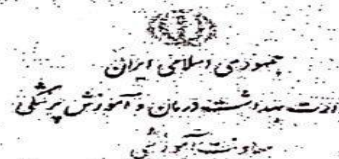 جمهوری اسلامی ایران
ارت بهداشت درمان و آموزش پزشکی
معاونت آموزشی